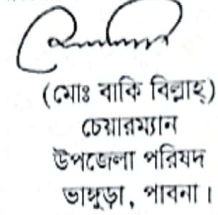 (মোঃ বাকি বিল্লাহ্)
চেয়ারম্যান
উপজেলা পরিষদ
ভাঙ্গুড়া, পাবনা।